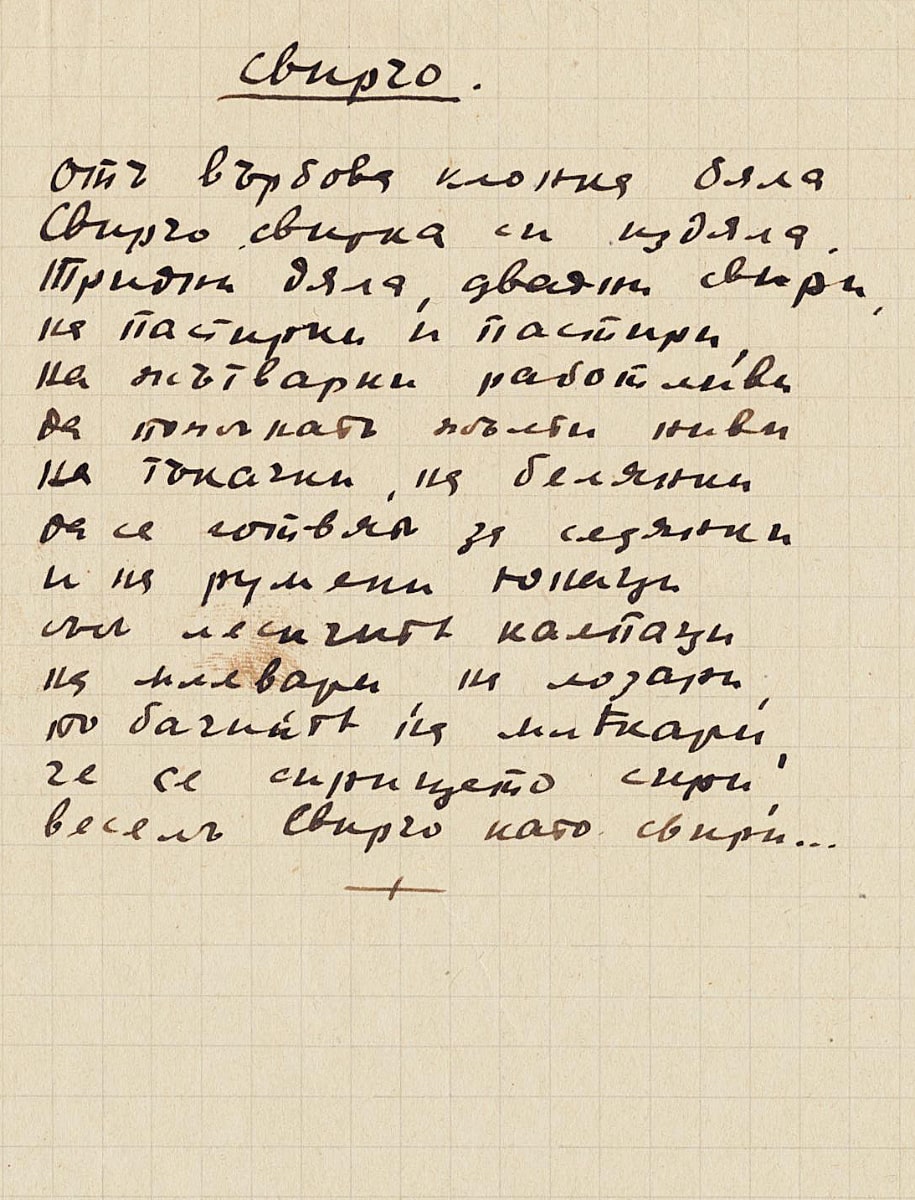 Свирчо.
отъ върбова клонка бяла
Свирчо свирка си издяла.
Триджи дяла, дважди свири,
на пастирки и пастири,
на жътварки работливи
да пожънатъ жълти ниви
на тъкачки, на белянки
да се готвят за седянки
и на румени юнаци
съсъ лесичитѣ калпаци
на млѣвари на лозари,
по бачиитѣ на млѣкари,
че се сирището сири,
веселъ Свирчо като свири...